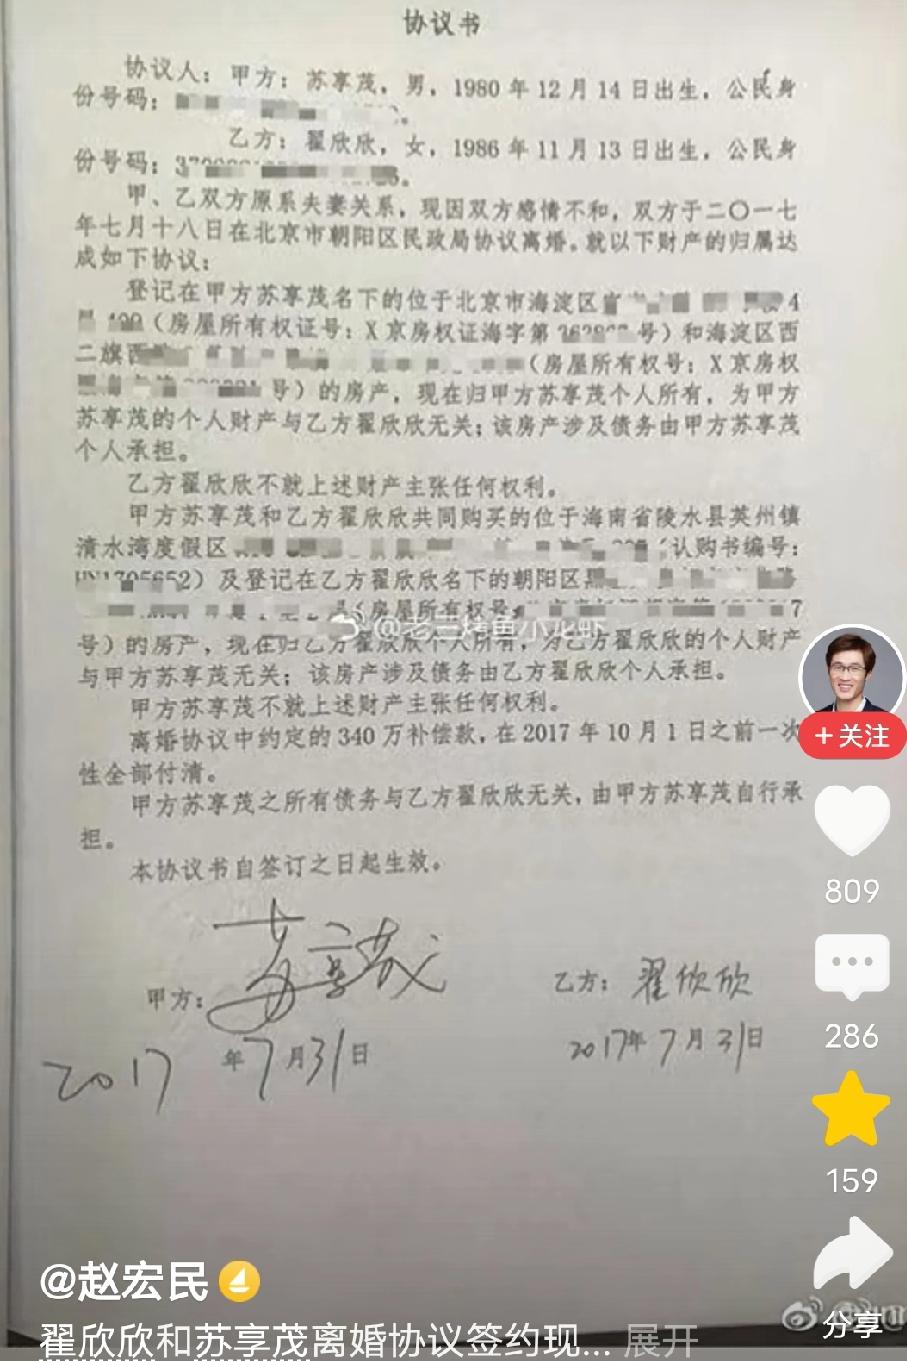 协议书
协议人：甲方：苏享茂，男，1980年12月14日出生，公民身
份号码：
乙方：翟欣欣，女，1986年11月13日出生，公民身
份号码：
甲、乙双方原系夫妻关系，现因双方感情不和，双方于二〇一七
年七月十八日在北京市朝阳区民政局协议离婚。就以下财产的归属达
成如下协议：
登记在甲方苏享茂名下的位于北京市海淀区
（房屋所有权证号：X京房权证海字第 号）和海淀区西
二旗西 （房屋所有权号：X京房权
号）的房产，现在归甲方苏享茂个人所有，为甲方
苏享茂的个人财产与乙方翟欣欣无关；该房产涉及债务由甲方苏享茂
个人承担。
乙方翟欣欣不就上述财产主张任何权利。
甲方苏享茂和乙方翟欣欣共同购买的位于海南省陵水县英州镇
清水湾度假区 （认购书编号：
）及登记在乙方翟欣欣名下的朝阳区
（房屋所有权号
号）的房产，现在归乙方翟欣欣个人所有，为乙方翟欣欣的个人财产
与甲方苏享茂无关；该房产涉及债务由乙方翟欣欣个人承担。
甲方苏享茂不就上述财产主张任何权利。
离婚协议中约定的340万补偿款，在2017年10月1日之前一次
性全部付清。
甲方苏享茂之所有债务与乙方翟欣欣无关，由甲方苏享茂自行承
担。
本协议书自签订之日起生效。
甲方：苏享茂
乙方：翟欣欣
2017年7月31日
2017年7月31日
+关注
809
286
159
分享
@赵宏民
翟欣欣和苏享茂离婚协议签约现... 展开